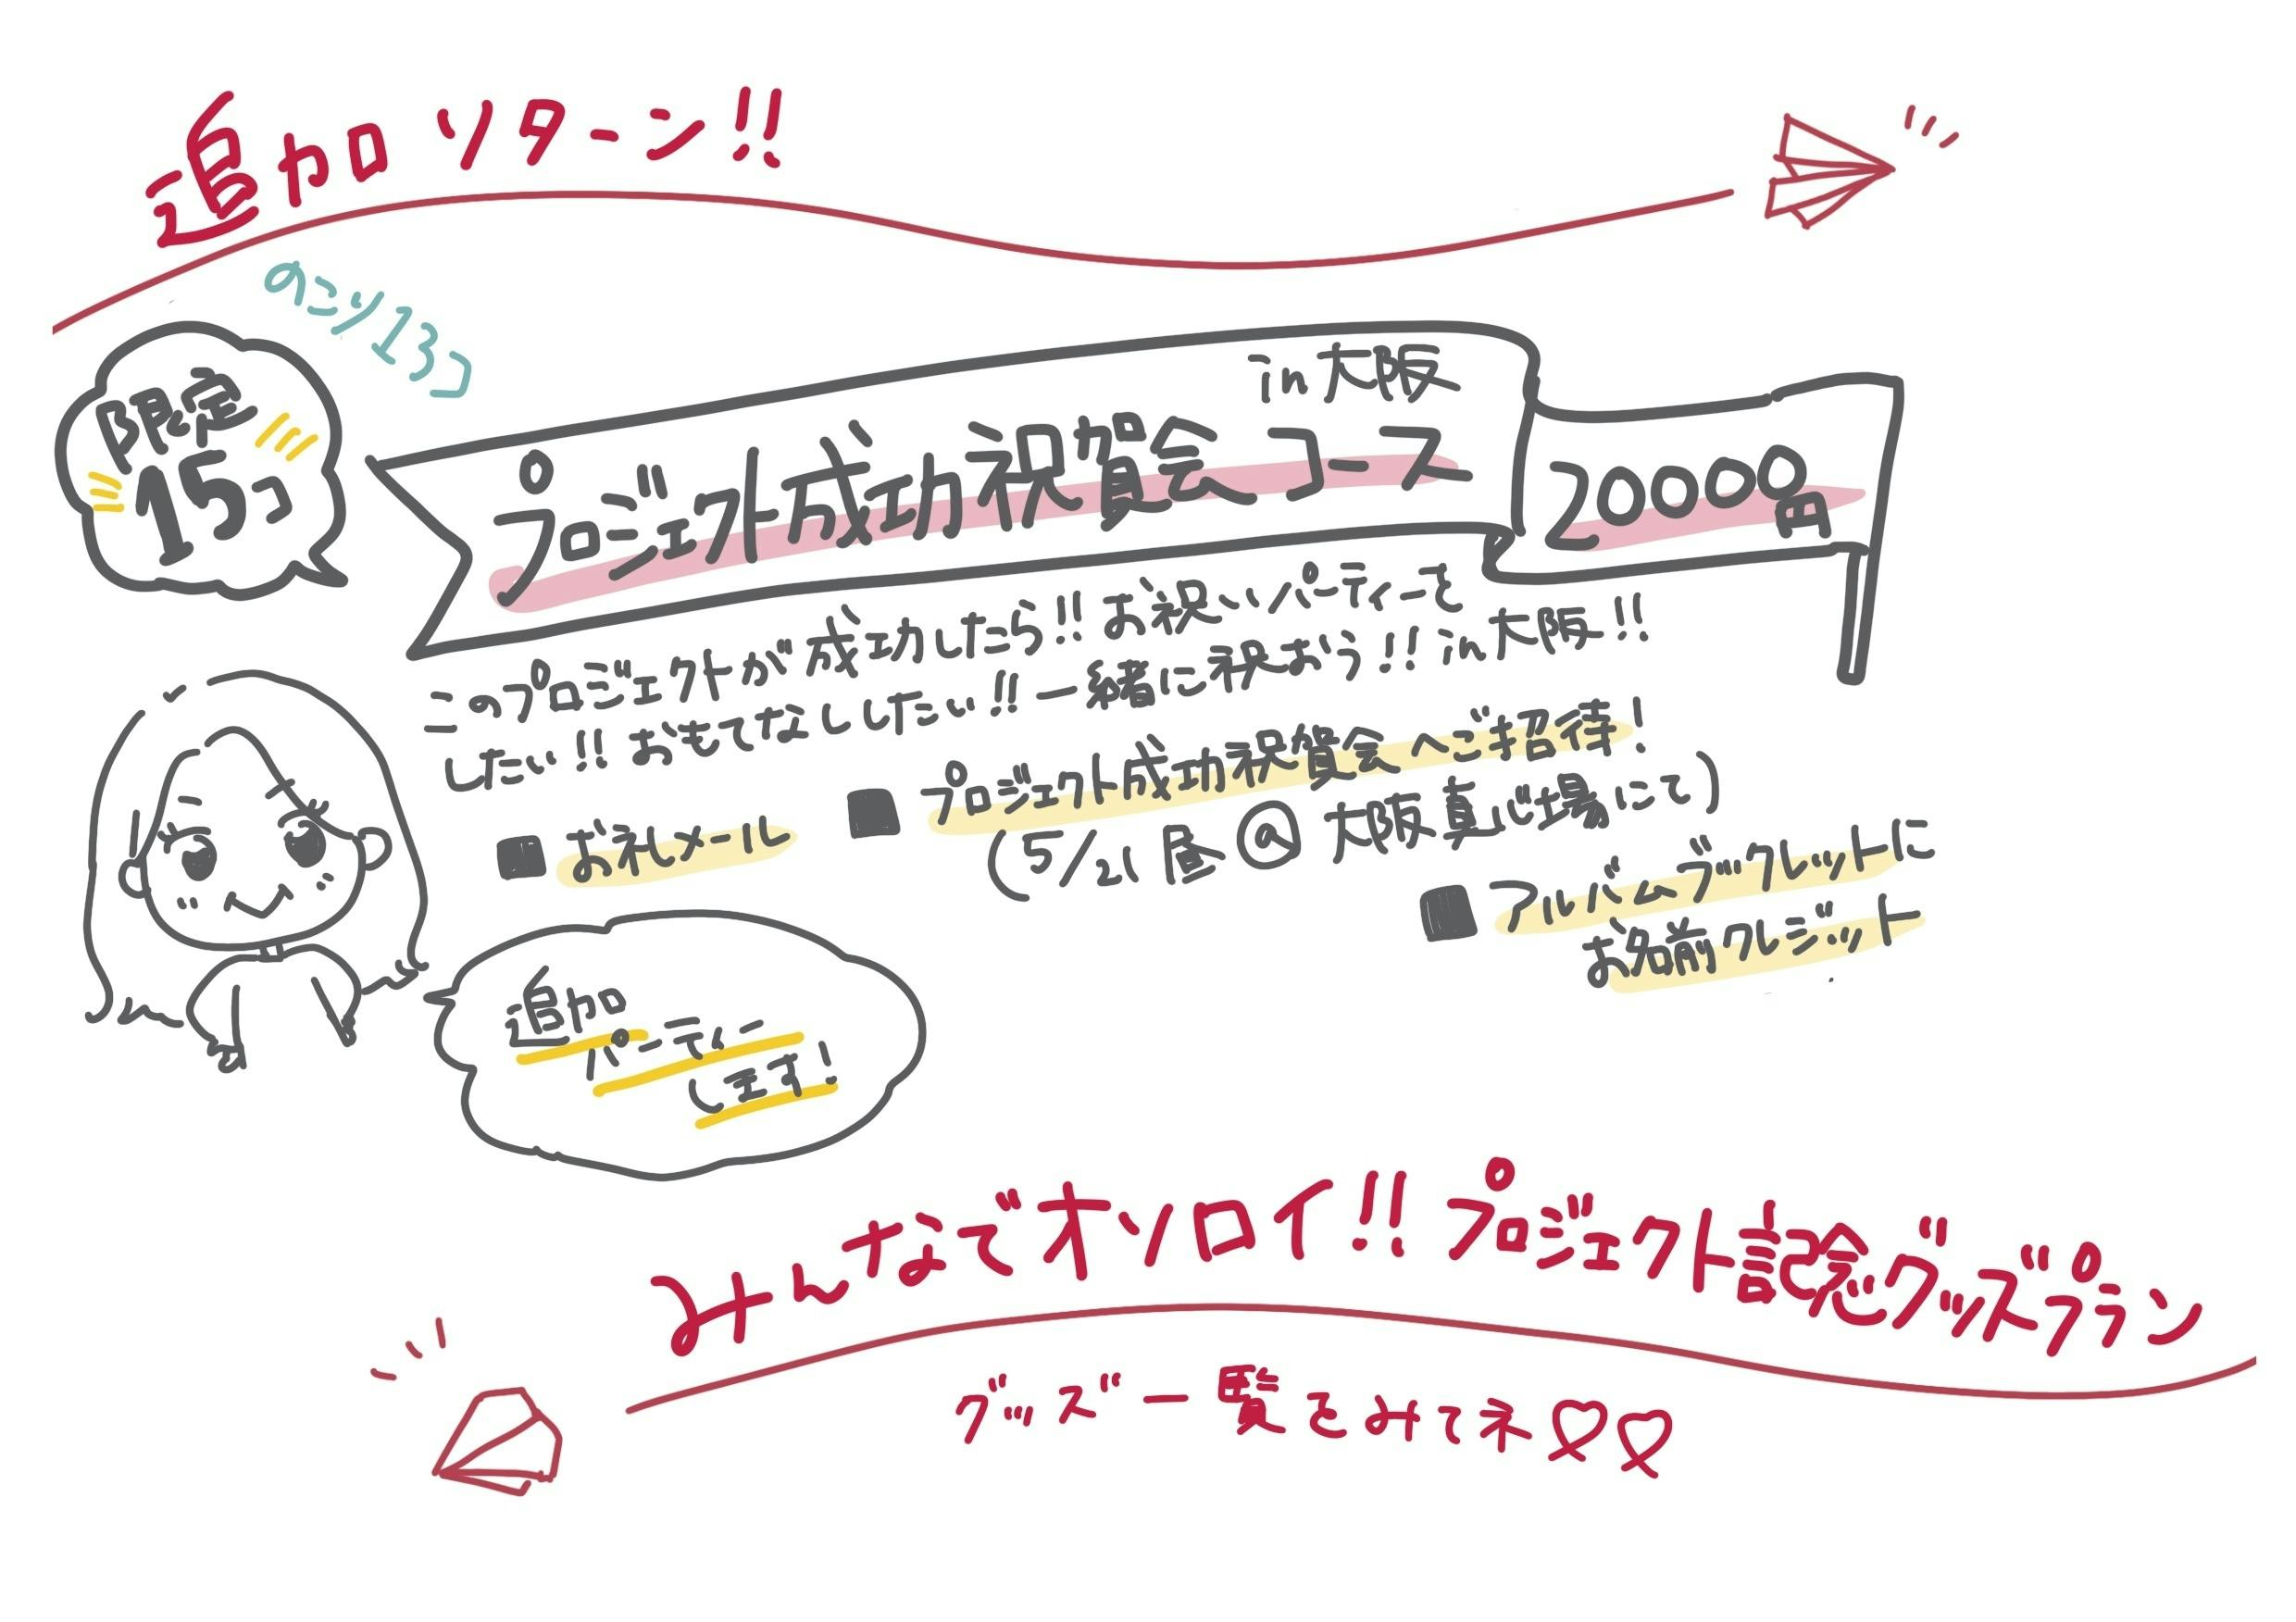 追加リターン!!
のこり13コ
限定
15コ
in 大阪
プロジェクト成功祝賀会コース
20000円
このプロジェクトが成功したら!! お祝いパーティーを
したい!! おもてなししたい!! 一緒に祝おう!! in 大阪!!
■ お礼メール
■ プロジェクト成功祝賀会へご招待!
(5/21 昼 @ 大阪真心場にて)
■ アルバムブックレットに
お名前クレジット
追加
パーティー
します!
みんなでオソロイ!! プロジェクト記念グッズプラン
グッズ一覧をみてネ♡♡